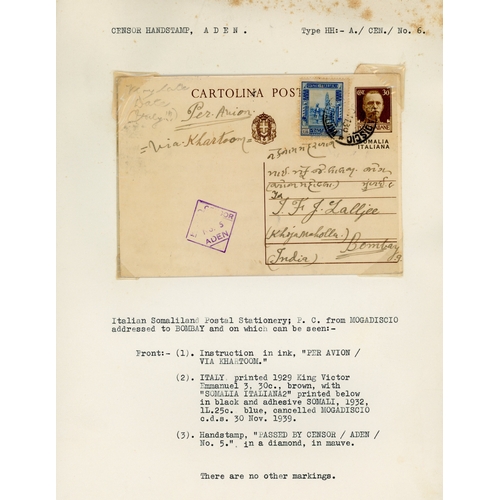 CENSOR HANDSTAMP, A D E N .    Type HH:- A./ CEN./ No. 6.
CARTOLINA POST
30
Per Avion
SOMALIA
ITALIANA
via Khartoom
To
I F J. Lalljee
(Khoja Moholla)
Bombay
(India)
9
ADEN
Italian Somaliland Postal Stationery; P. C. from MOGADISCIO
addressed to BOMBAY and on which can be seen:-
Front:- (1). Instruction in ink, "PER AVION /
VIA KHARTOOM."
(2). ITALY, printed 1929 King Victor
Emmanuel 3, 30c., brown, with
"SOMALIA ITALIANA2" printed below
in black and adhesive SOMALI, 1932,
1L.25c. blue, cancelled MOGADISCIO
c.d.s. 30 Nov. 1939.
(3). Handstamp, "PASSED BY CENSOR / ADEN /
No. 5.", in a diamond, in mauve.
There are no other markings.